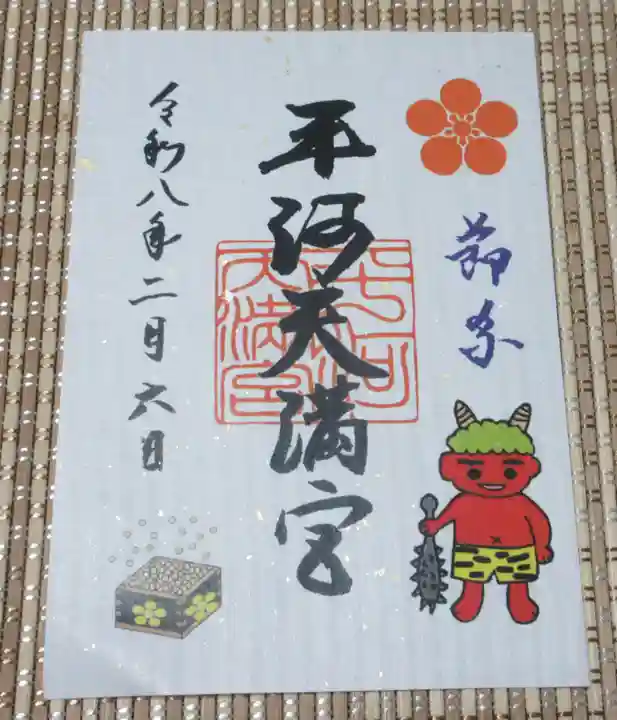 節分祭
平河天満宮
平河天満宮
令和八年二月六日